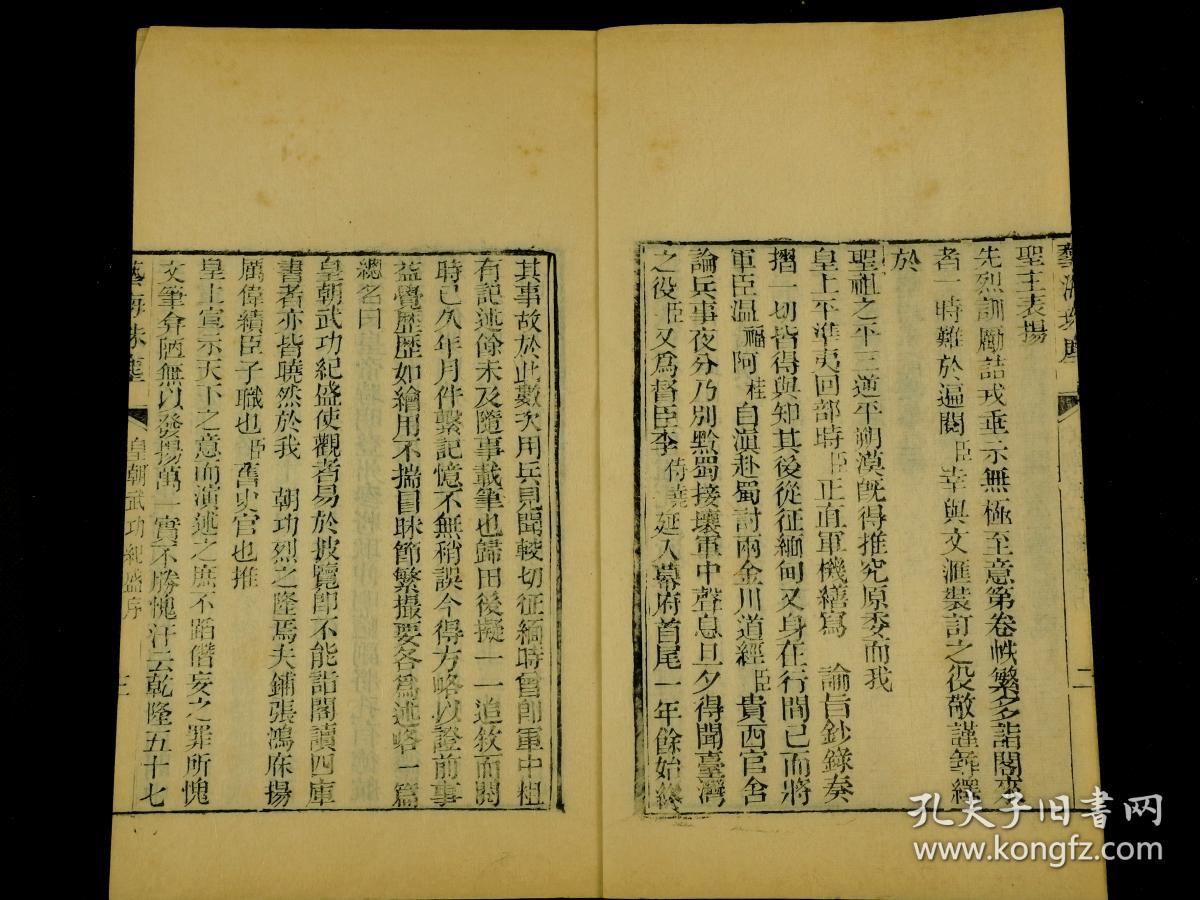 藝海珠塵
二
聖主表揚
先烈訓勵詰戎垂示無極至意第卷帙繁多詣閣來
者一時難於遍閱臣幸與文滙裝訂之役敬謹繹
於
聖祖之平三逆平朔漠旣得推究原委而我
皇上平準夷回部時臣正直軍機繕寫 諭旨鈔錄奏
摺一切皆得與知其後從征緬甸又身在行間已而將
軍臣温福阿桂自滇赴蜀討兩金川道經臣貴西官舍
論兵事夜分乃別黔蜀接壤軍中聲息旦夕得聞臺灣
之役臣又爲督臣李侍堯延入幕府首尾一年餘始終
其事故於此數次用兵見聞較切征緬時曾卽軍中粗
有記述餘未及隨事載筆也歸田後擬一一追敘而閱
時已久年月件繫記憶不無稍誤今得方略以證前事
益覺歷歷如繪用不揣冒昧節繁撮要各爲述略一篇
總名曰
皇朝武功紀盛使觀者易於披覽卽不能詣閣讀四庫
書者亦皆曉然於我 朝功烈之隆焉夫鋪張鴻庥揚
厲偉績臣子職也臣舊史官也推
皇上宣示天下之意而演述之庶不蹈僭妄之罪所愧
文筆弇陋無以發揚萬一實不勝愧汗云乾隆五十七
藝海珠塵
皇朝武功紀盛序
三
孔夫子旧书网
www.kongfz.com